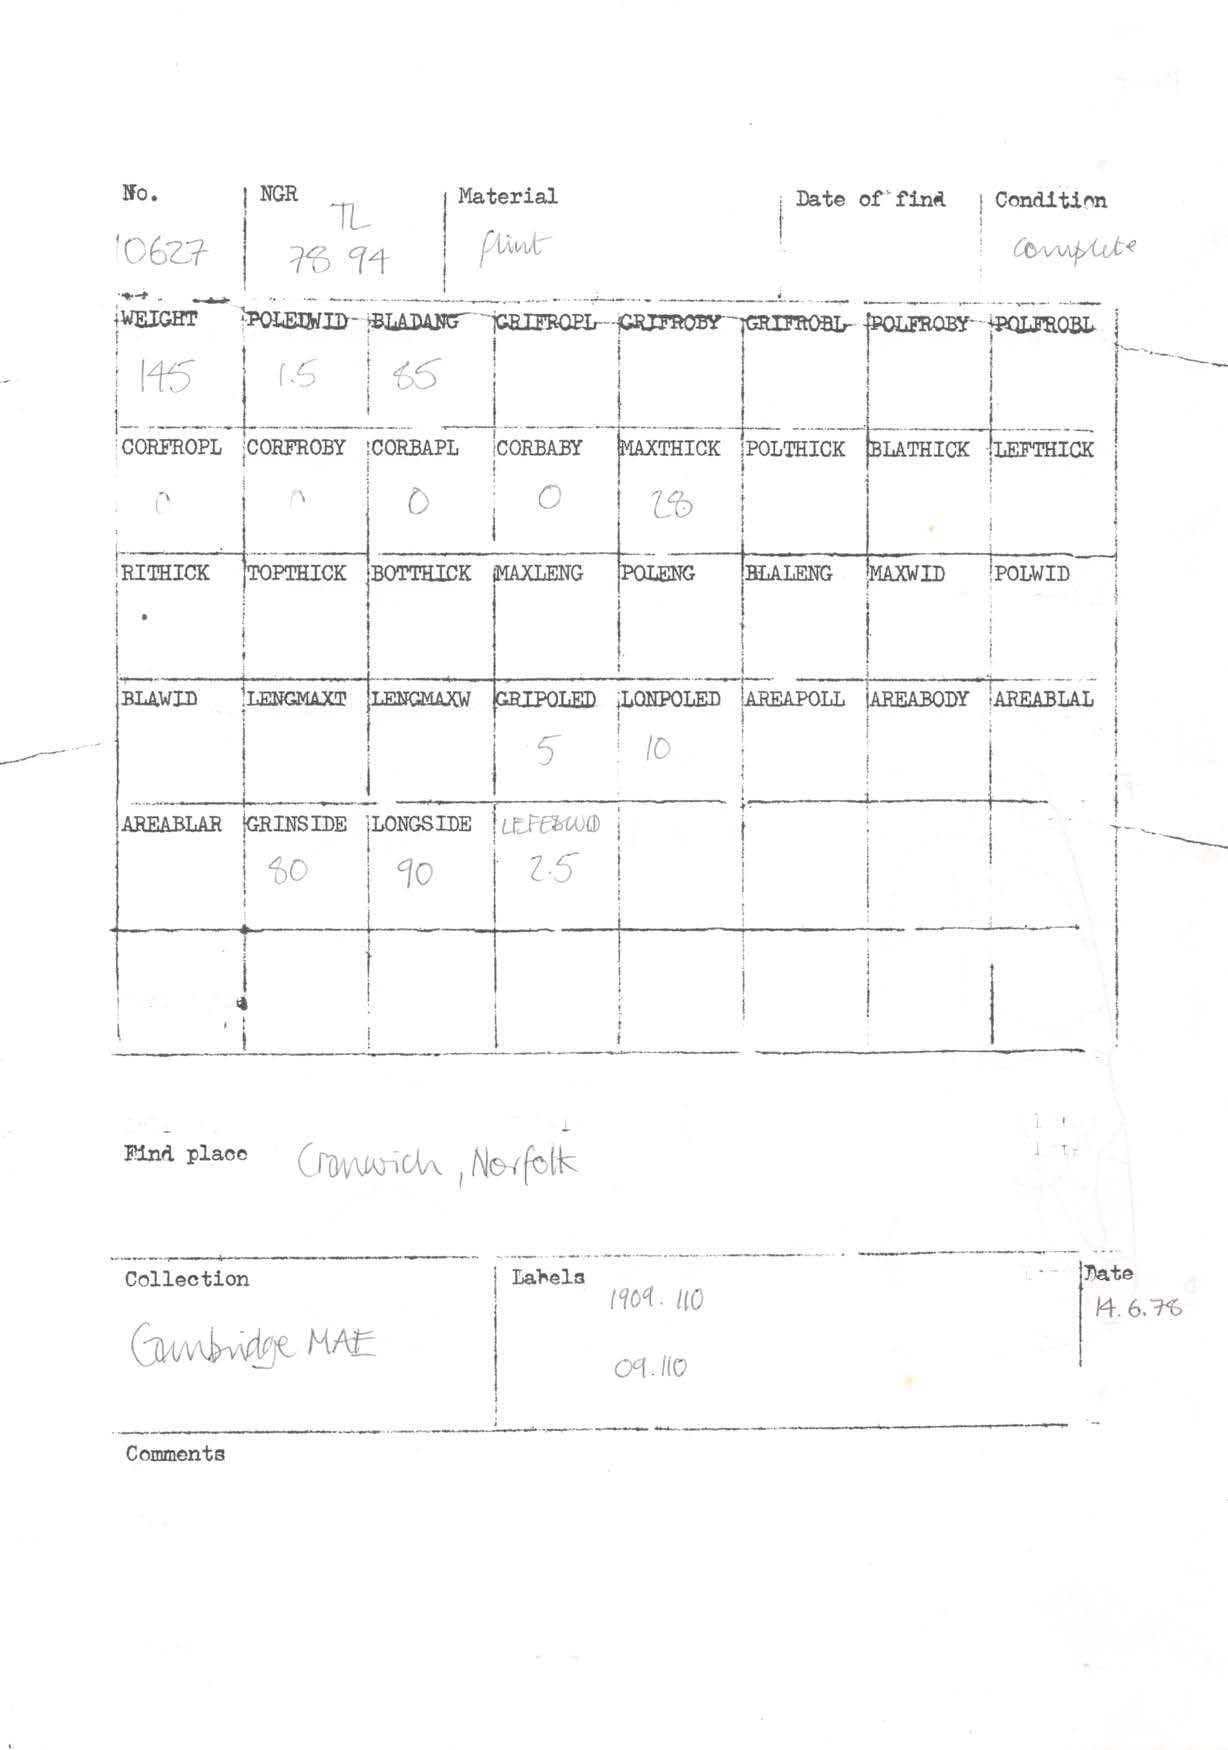 No. NGR Material Date of find Condition
10627 TL 78 94 flint complete
WEIGHT POLEDWID BLADANG GRIFROPL GRIFROBY GRIFROBL POLFROBY POLFROBL
145 1.5 85
CORFROPL CORFROBY CORBAPL CORBABY MAXTHICK POLTHICK BLATHICK LEFTHICK
0 0 0 0 28
RITHICK TOPTHICK BOTTHICK MAXLENG POLENG BLALENG MAXWID POLWID
BLAWID LENGMAXT LENGMAXW GRIPOLED LONPOLED AREAPOLL AREABODY AREABLAL
5 10
AREABLAR GRINSIDE LONGSIDE
80 90 2.5
Find place Cranwich, Norfolk
Collection Labels Date
1909.110 14.6.78
Cambridge MAE
09.110
Comments